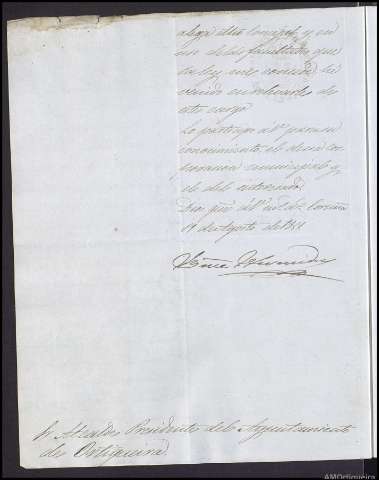 alega dho Concejal y en
uso de las facultades que
la ley me concede he
venido en relevarle de
este cargo.
Lo participo á V. para su
conocimiento, el de esa Cor-
poracion municipal y
el del interesado.
Dios gue á V. m. a. Coruña
19 de Agosto de 18
Sr Alcalde Presidente del Ayuntamiento
de Ortigueira.
AMOrtigueira